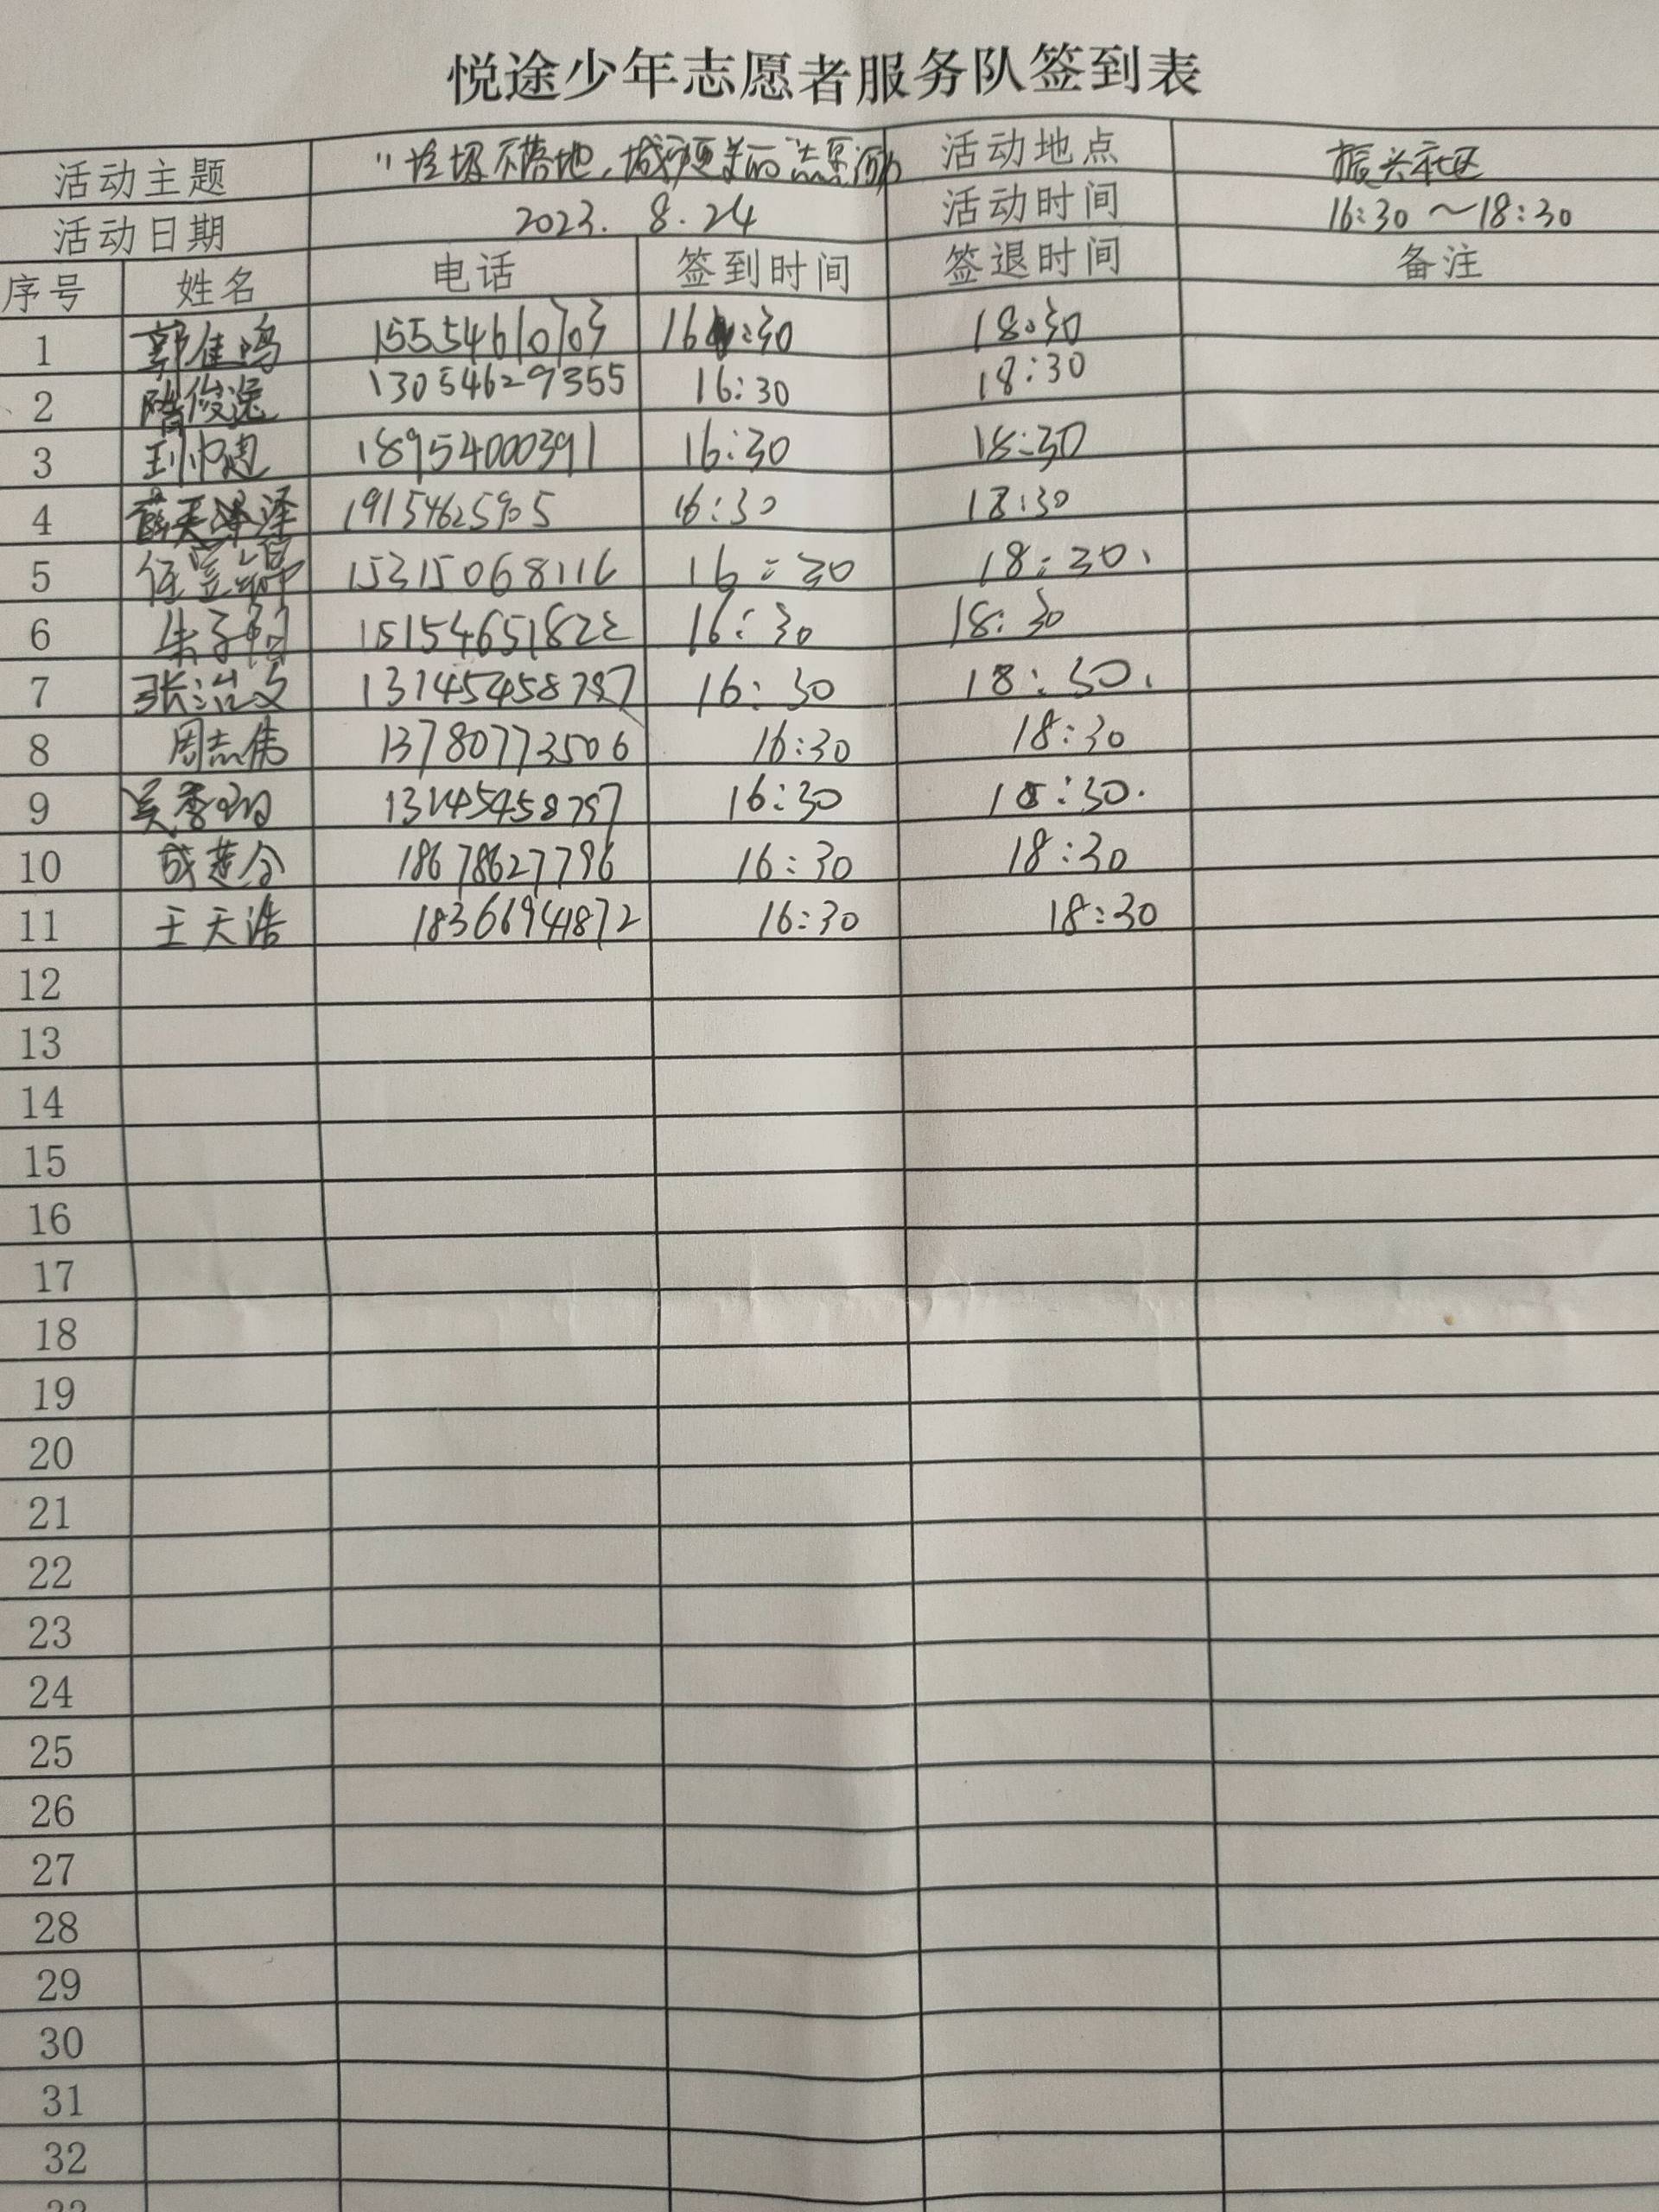 悦途少年志愿者服务队签到表
活动主题 "垃圾不落地,城市更美的志愿活动 活动地点 振兴社区
活动日期 2023. 8. 24 活动时间 16:30～18:30
序号 姓名 电话 签到时间 签退时间 备注
1 郭佳鸣 16:30 18:30
2 隋俊逸 13054629355 16:30 18:30
3 18954000391 16:30 18:30
4 薛天泽 19154625905 16:30 18:30
5 15315068116 16:30 18:30.
6 16:30 18:30
7 张治文 16:30 18:30.
8 周志伟 13780773506 16:30 18:30
9 16:30 18:30.
10 18678627796 16:30 18:30
11 王天浩 18366941872 16:30 18:30
12
13
14
15
16
17
18
19
20
21
22
23
24
25
26
27
28
29
30
31
32
33